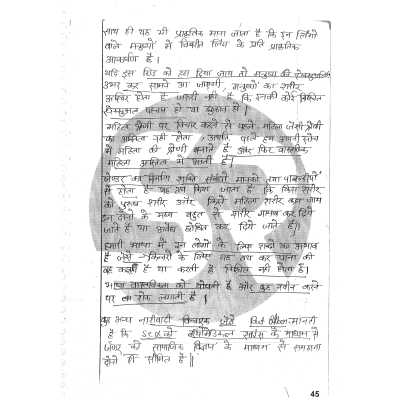 साथ ही यह भी प्राकृतिक माना जाता है कि इन लिंगो
वाले मनुष्यों में विपरीत लिंग के प्रति प्राकृतिक
आकर्षण है।
यदि इस को हटा दिया जाय तो मनुष्य की
उभर कर सामने आ जाएगी मनुष्यों का शरीर
अस्थिर होता है जरूरी नहीं है कि इनकी कोई निश्चित
हो या झुकाव हो।
महिला श्रेणी पर विचार करने से पहले महिला जैसी श्रेणी
का अस्तित्व नहीं होता अर्थात पहले हम अपनी सोच
में महिला की श्रेणी बनाते हैं और फिर वास्तविक
महिला अस्तित्व में आती है।
जेण्डर का निर्माण शक्ति संबंधी मापकों तथा पाबन्दियों
से होता है यह तय किया जाता है कि किस शरीर
को पुरुष शरीर और किसे महिला शरीर कहा जाय
इन दोनों के मध्य बहुत से शरीर गायब कर दिये
जाते हैं या अवैध घोषित कर दिये जाते हैं।
हमारी भाषा में इन लोगों के लिए शब्दों का अभाव
है जैसे किन्नरों के लिए यह तय कर पाना की
वह कहता है या करती है निश्चित नहीं होता है।
भाषा वास्तविकता को थोपती है और कुछ नवीन करने
पर रोक लगाती है।
कुछ अन्य नारीवादी विचारक मानती
है कि को बायोमेडिकल साइंस के माध्यम से
जेण्डर को सामाजिक विज्ञान के माध्यम से समझना
दोनों ही सीमित है।
45